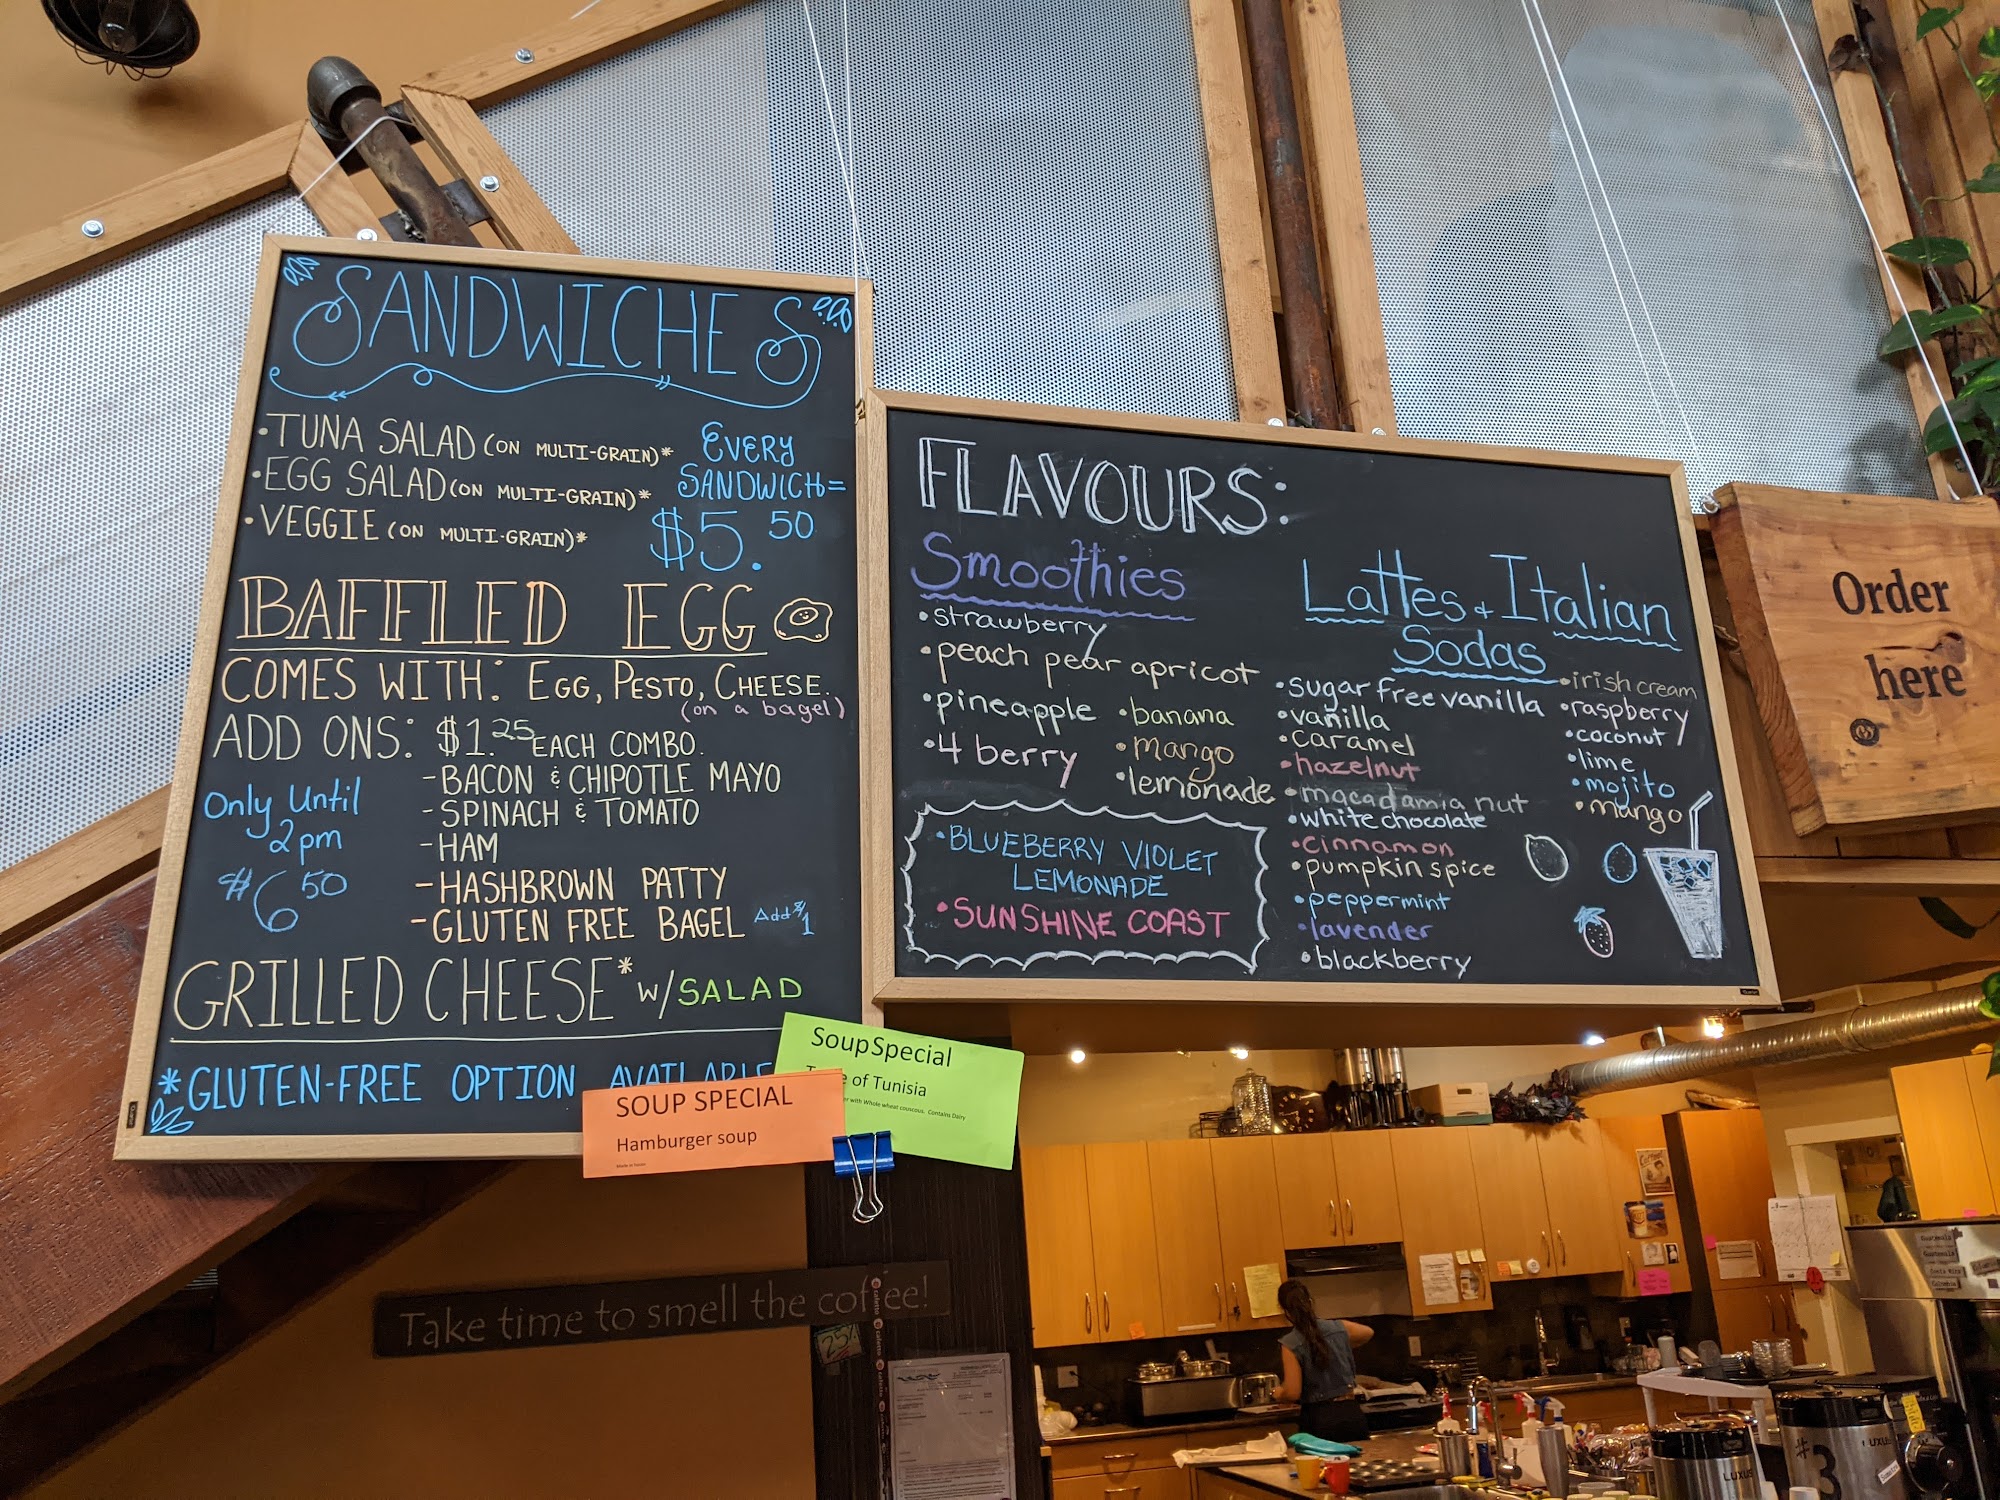 SANDWICHES
•TUNA SALAD (ON MULTI-GRAIN)*
•EGG SALAD (ON MULTI-GRAIN)*
•VEGGIE (ON MULTI-GRAIN)*
EVERY
SANDWICH=
$5.50
BAFFLED EGG
COMES WITH: EGG, PESTO, CHEESE.
(on a bagel)
ADD ONS: $1.25 EACH COMBO.
-BACON & CHIPOTLE MAYO
-SPINACH & TOMATO
-HAM
-HASHBROWN PATTY
-GLUTEN FREE BAGEL Add $1
Only Until
2pm
$6.50
GRILLED CHEESE* W/SALAD
*GLUTEN-FREE OPTION AVAILABLE
SOUP SPECIAL
Hamburger soup
Soup Special
of Tunisia
with Whole wheat couscous. Contains Dairy
FLAVOURS:
Smoothies
•strawberry
•peach pear apricot
•pineapple
•4 berry
•banana
•mango
•lemonade
•BLUEBERRY VIOLET
LEMONADE
•SUNSHINE COAST
Lattes & Italian
Sodas
•sugar free vanilla
•vanilla
•caramel
•hazelnut
•macadamia nut
•white chocolate
•cinnamon
•pumpkin spice
•peppermint
•lavender
•blackberry
•irish cream
•raspberry
•coconut
•lime
•mojito
•mango
Order
here
Take time to smell the coffee!
25%
#3
LUXUS